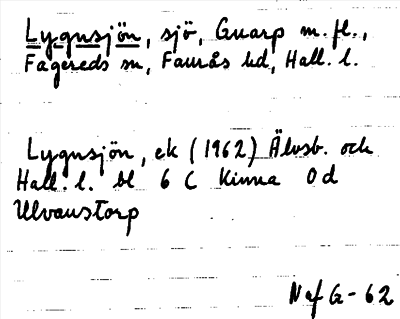 Lygnsjön, sjö, Gnarp m. fl.,
Fagereds sn, Faurås hd, Hall. l.
Lygnsjön, ek (1962) Älvsb. och
Hall. l. bl 6 C Kinna 0 d
Ulvanstorp
Naf G-62